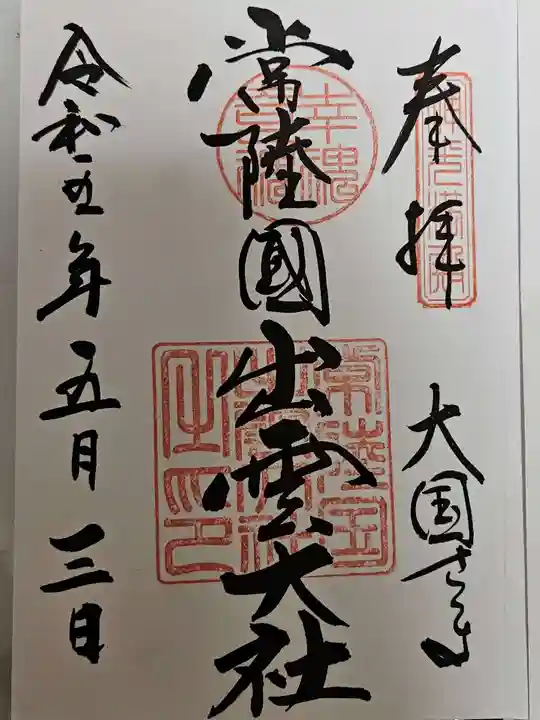 奉拝
大国さま
常陸國出雲大社
令和五年五月三日
常陸国出雲大社之印